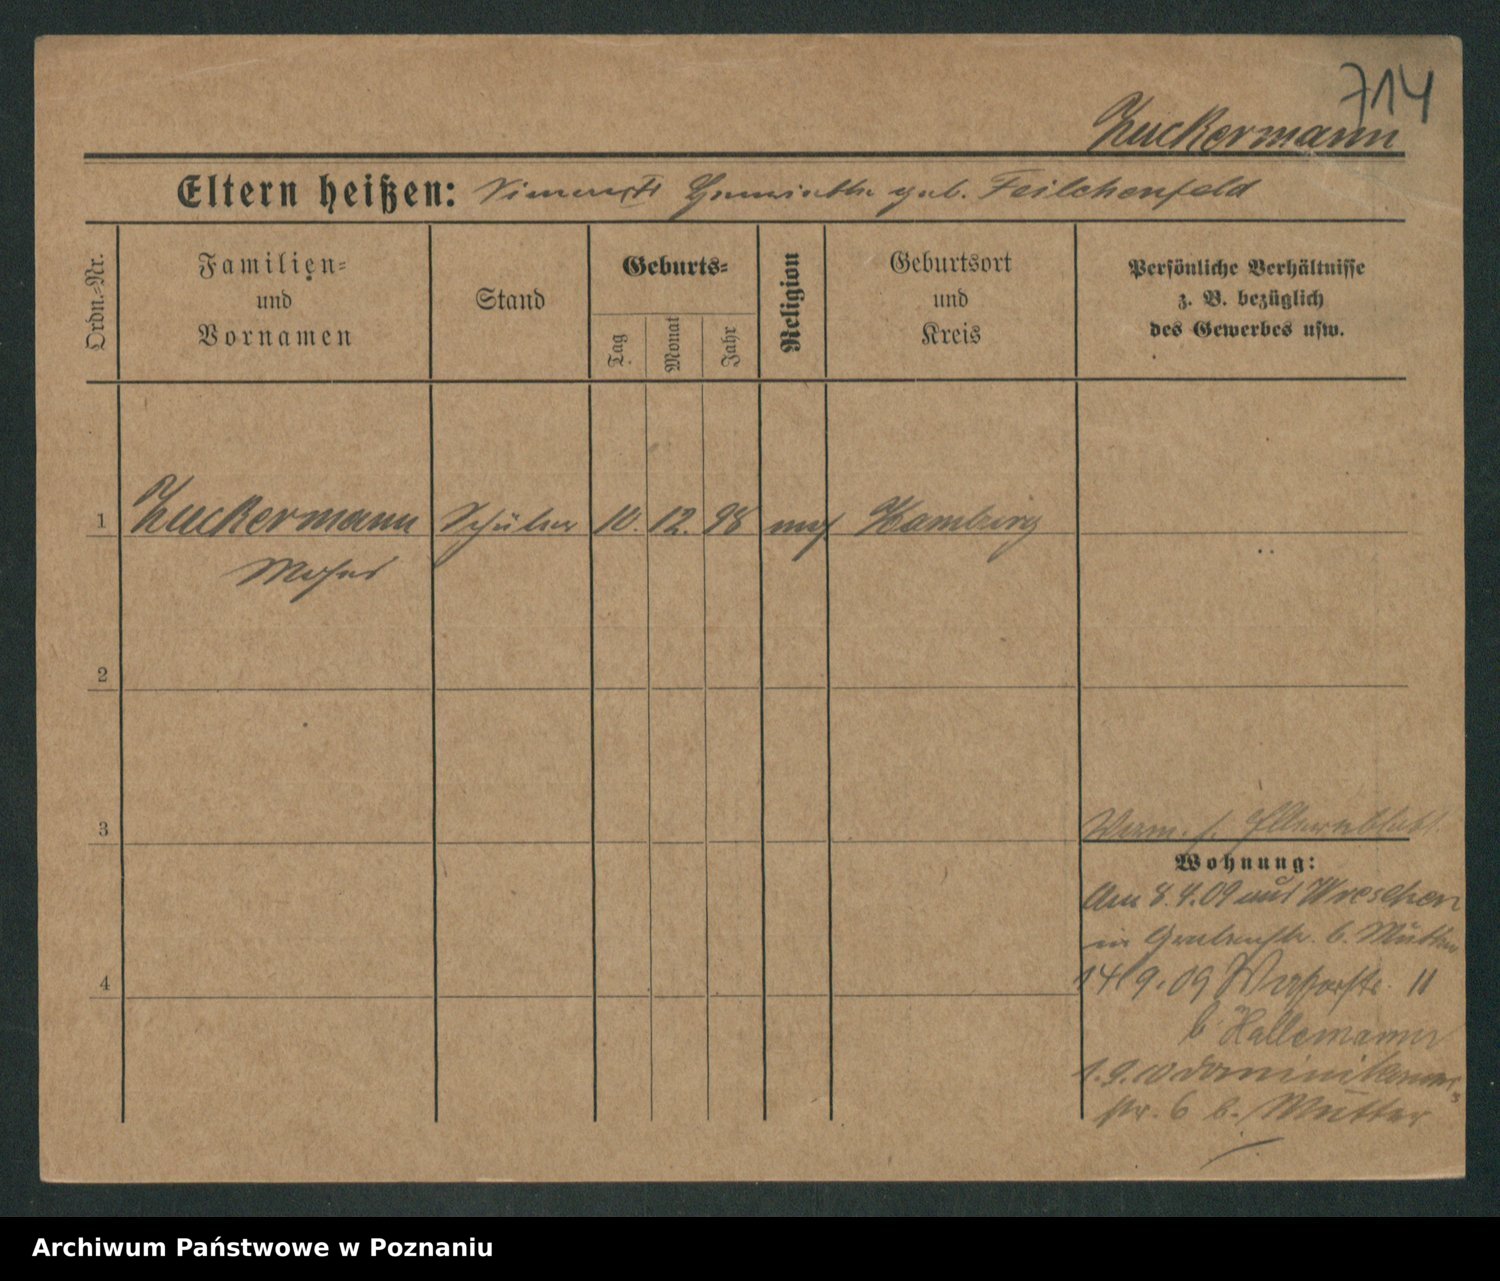 714
Zuckermann
Eltern heißen: Henriette geb. Feilchenfeld
Ordn.-Nr.
Familien-
und
Vornamen
Stand
Geburts-
Tag
Monat
Jahr
Religion
Geburtsort
und
Kreis
Persönliche Verhältnisse
z. B. bezüglich
des Gewerbes usw.
1 Zuckermann Schüler 10. 12. 98 mos Hamburg
Moses
2
3
Verm. f.
Wohnung:
Am 8.4.09 aus Wreschen
in Grabenstr. b. Mutter
4
14/9.09 11
b Hallemann
1.9.10 Dominikaner
str. 6 b. Mutter
Archiwum Państwowe w Poznaniu